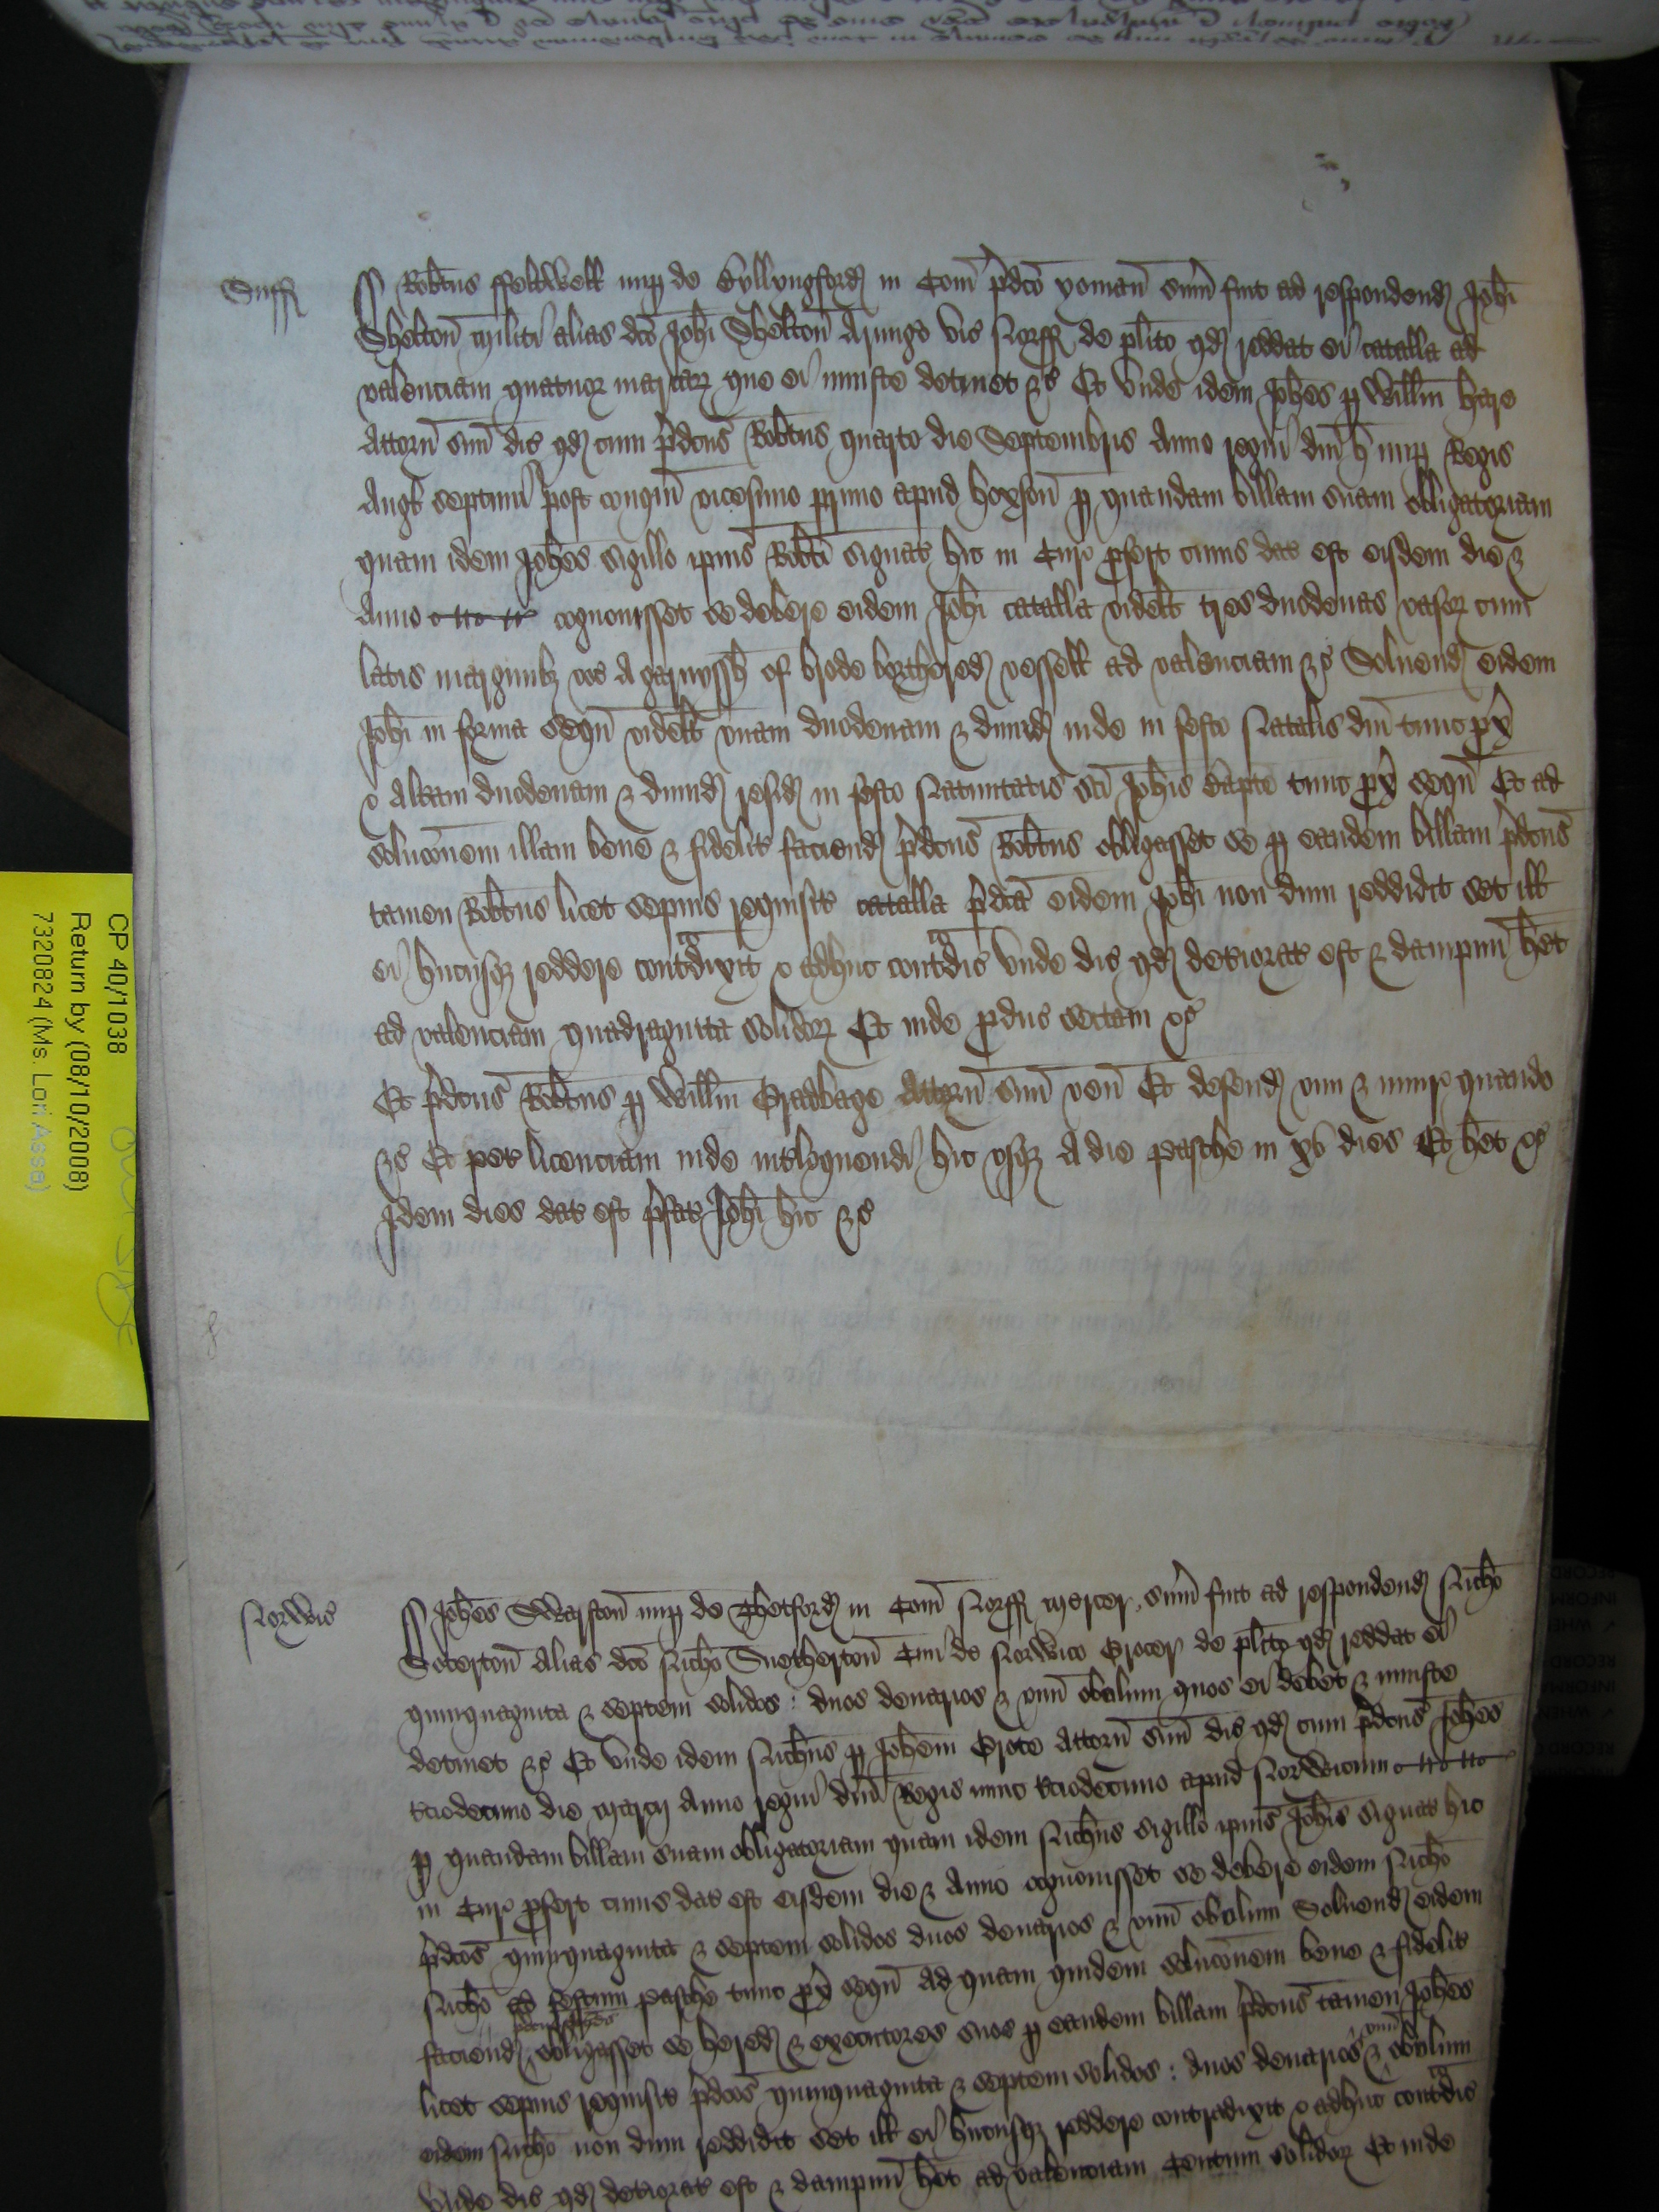 Suff
Robtus ffeldwell nup de Byllyngford in Com pdco yoman sum fuit ad respondend Johi
Shelton militi alias dco Johi Shelton Armigo vic Norff de plito qd reddat ei catalla ad
valenciam quatuor marcar que ei iniuste detinet &c Et unde idem Johes p Willm hare
Attorn suu dic qd cum pdcus Robtus quarto die Septembris Anno regni dni h nup Regis
Angl septimi post conqm vicesimo primo apud hoxson p quandam billam suam obligatoriam
quam idem Johes sigillo ipius Robti signat hic in Cur pfert cuius dat est eisdem die &
Anno cognovisset se debere eidem Johi catalla videlt tres duodenas vasor cum
latis marginibz voc A garnyssh of brode bordered vessell ad valenciam &c Solvend eidem
Johi in forma sequ videlt unam duodenam & dimid inde in festo Natalis dni tunc px
& Altam duodenam & dimid resid in festo Nativitatis sci Johis Bapte tunc px sequ Et ad
solucoem illam bene & fidelit faciend pdcus Robtus obligasset se p eandem billam pdcus
tamen Robtus licet sepius requisit catalla pdca eidem Johi non dum reddidit set ill
ei hucusqz reddere contadixit & adhuc contadic Unde dic qd detiorat est & dampnu het
ad valenciam quadraginta solidor Et inde pduc sectam &c
Et pdcus Robtus p Willm Gradbage Attorn suu ven Et defend vim & iniur quando
&c Et pet licenciam inde intloquendi hic usqz A die pasche in xv dies Et het &c
Idem dies dat est pfat Johi hic &c
Norwic
Johes Swafton nup de Thetford in Com Norff mercer sum fuit ad respondend Nicho
Soterton Alias dco Nicho Suetherton Civi de Norwico Grocer de plito qd reddat ei
quinquaginta & septem solidos duos denarios & unu obolum quos ei debet & iniuste
detinet &c Et Unde idem Nichus p Johem Grote Attorn suu dic qd cum pdcus Johes
tciodecimo die marcij Anno regni dni Regis nunc tciodecimo apud Norwicum
p quandam billam suam obligatoriam quam idem Nichus sigillo ipius Johis signat hic
in Cur pfert cuius dat est eisdem die & Anno cognovisset se debere eidem Nicho
pdcos quinquaginta & septem solidos duos denarios & unu obolum Solvend eidem
Nicho ad festum pasche tunc px sequ Ad quam quidem solucoem bene & fidelit
faciend pdcus Johes obligasset se hered & executores suos p eandem billam pdcus tamen Johes
licet sepius requisit pdcos quinquaginta & septem solidos duos denarios & unu obolum
eidem Nicho non dum reddidit set ill ei hucusqz reddere contradixit & adhuc contadic
Unde dic qd detiorat est & dampnu het ad valenciam Centum solidor Et inde
CP 40/1038
Return by (08/10/2008)
7320824 (Ms. Lori Assa)